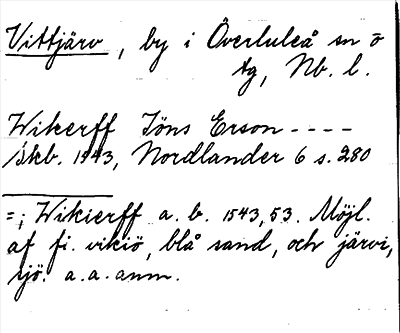 Vittjärv, by i Överluleå sn ö
tg, Nb. l.
Wikerff Jöns Erson ----
skb. 1543, Nordlander 6 s. 280
=; Wikierff a. b. 1543, 53. Möjl.
af fi. vikiö, blå sand, och järvi,
sjö. a. a. anm.